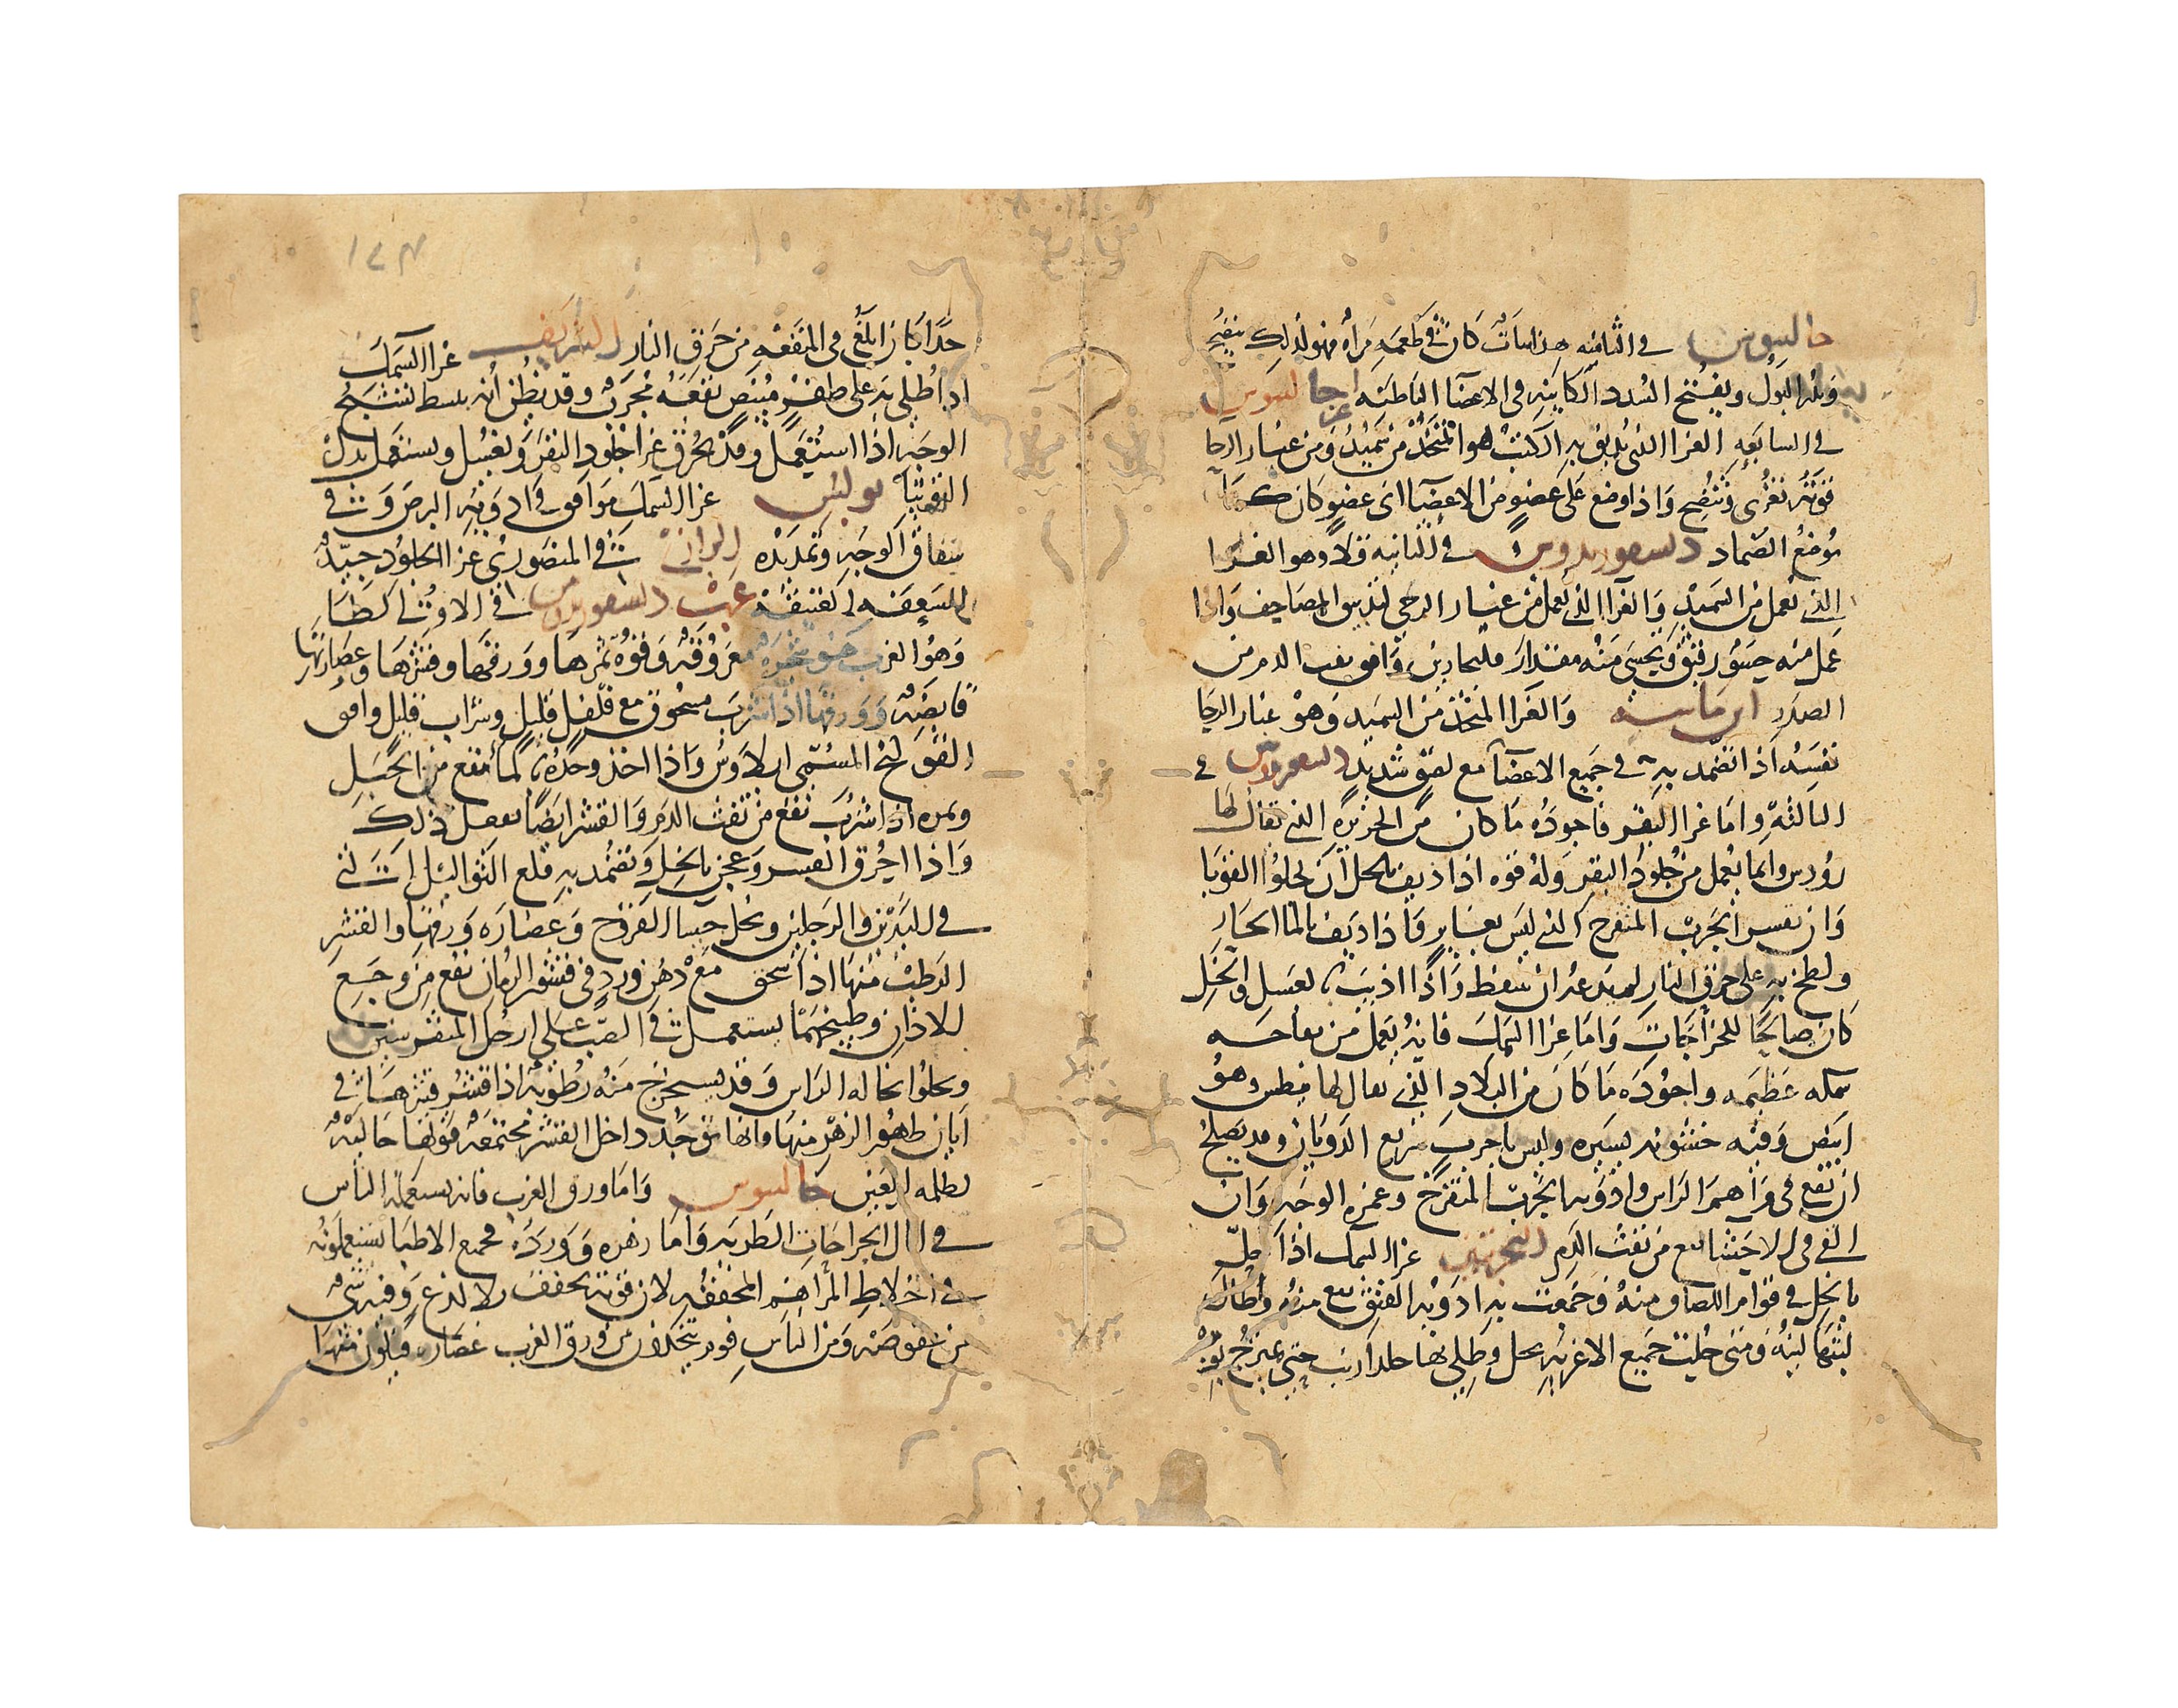 جالينوس في الثامنه هذا نبات كان في طعمه مرارة فهو لذلك ينضج
ويدر البول ويفتح السدد الكاينه في الاعضا الباطنه جالينوس
في السابعه الغرا الذي يلزق به الكتب هو المتخذ من سميد ومن غبار الرحا
قوته تغرى وتنضج واذا وضع على عضو من الاعضا اى عضو كان كما
يوضع الضماد ديسقوريدوس في الثانيه وهو الغرا
الذي يعمل من السميد والغرا الذي يعمل من غبار الرحى المصاحف واذا
عمل منه حسو رقيق وتحسى منه مقدار وافق نفث الدم من
الصدر والغرا المتخذ من السميد وهو غبار الرحا
نفسه اذا تضمد به في جميع الاعضا مع لصق شديد ديسقوريدوس في
الثالثه واما غرا البقر فاجوده ما كان من الجزيرة التي يقال لها
رودس وانما يعمل من جلود البقر وله قوه اذا ديف بالخل ان يجلوا القوبا
وان يقشر الجرب المتقرح الذي ليس بغاير واذا ديف بالما الحار
ولطخ به على حرق النار لم يدعه ان يتنفط واذا اذيب بالعسل والخل
كان صالحا للجراحات واما غرا السمك فانه يعمل من نفاخه
سمكه عظيمه واجوده ما كان من البلاد التي يقال لها بنطس وهو
ابيض وفيه خشونه يسيره وليس باجرب سريع الذوبان وقد يصلح
ان يقع في مراهم الراس وادويه الجرب المتقرح وغمزه الوجه وان
القى في الاحشا نفع من نفث الدم غرا السمك اذا حل
بالخل في قوام اللصاق منه وجمعت به ادويه الفتق نفع منه واطال
لبثها لينه ومتى حلت جميع الاغريه بخل وطلي بها
جدا كان ابلغ في المنفعه من حرق النار الشريف غرا السمك
اذا طلي به على ظفر مبيض نفعه مجرب وقد يظن انه يبسط تشنج
الوجه اذا استعمل وقد يحرق غرا جلود البقر ويغسل ويستعمل بدل
التوتيا بولس غرا السمك موافق في ادويه البرص وفي
شقاق الوجه وتمديده الرازي في المنصوري غرا الجلود جيد
للسعفه العتيقه غرب ديسقوريدوس في الاولى اطا
وهو الغرب شجره معروفه وقوة ثمرها وورقها وقشرها وعصارتها
قابضه وورقها اذا شرب مسحوق مع فلفل قليل وشراب قليل وافق
القولنج المسمى ايلاوس واذا اخذ وحده بالما منع من الحبل
وثمره اذا شرب نفع من نفث الدم والقشر ايضا يفعل ذلك
واذا احرق القشر وعجن بالخل وتضمد به قلع الثواليل التي
في اليدين والرجلين ويحل جسا القروح وعصاره ورقها والقشر
الرطب منها اذا سحق مع دهن ورد في قشر الرمان نفع من وجع
الاذان وطبيخهما يستعمل في الصب على ارجل المنقرسين
ويجلوا نخاله الراس وقد يستخرج منه رطوبه اذا قشر قشرها في
ابان ظهور الزهر منها فانها توجد داخل القشر مجتمعه قوتها جاليه
لظلمه العين جالينوس واما ورق الغرب فانه يستعمله الناس
في ادمال الجراحات الطريه واما زهره وورده فجميع الاطبا يستعملونه
في اخلاط المراهم المجففه لان قوته تجفف بلا لذع وفيه شي
من عفوصه ومن الناس قوم يتخذون من ورق الغرب عصاره فيكون منها